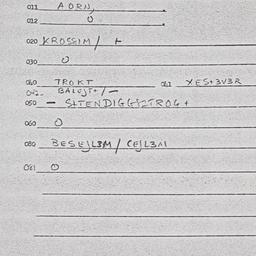 011 AORN,
012 O
020 KROSSIM / +
030 O
040 TROKT 041 XES+3V3R
042 BALEJT+ / -
050 - S+TENDIGG+2TROG +
060 O
080 BESEJL3M / CEJL3M
081 O